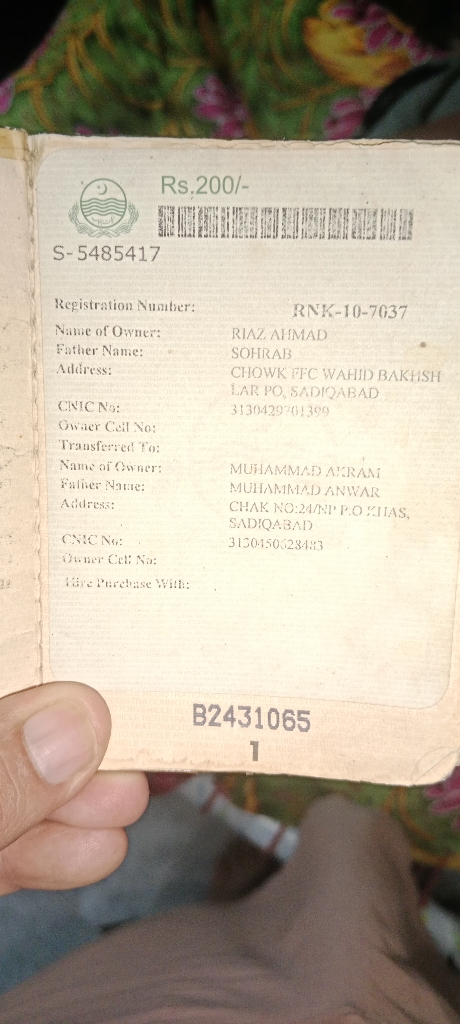 Rs.200/-
S-5485417
Registration Number: RNK-10-7037
Name of Owner: RIAZ AHMAD
Father Name: SOHRAB
Address: CHOWK FFC WAHID BAKHSH
LAR PO, SADIQABAD
CNIC No:
Owner Cell No:
Transferred To:
Name of Owner: MUHAMMAD AKRAM
Father Name: MUHAMMAD ANWAR
Address: CHAK NO:24/NP P.O KHAS,
SADIQABAD
CNIC No: 3130450628483
Owner Cell No:
Hire Purchase With:
B2431065
1